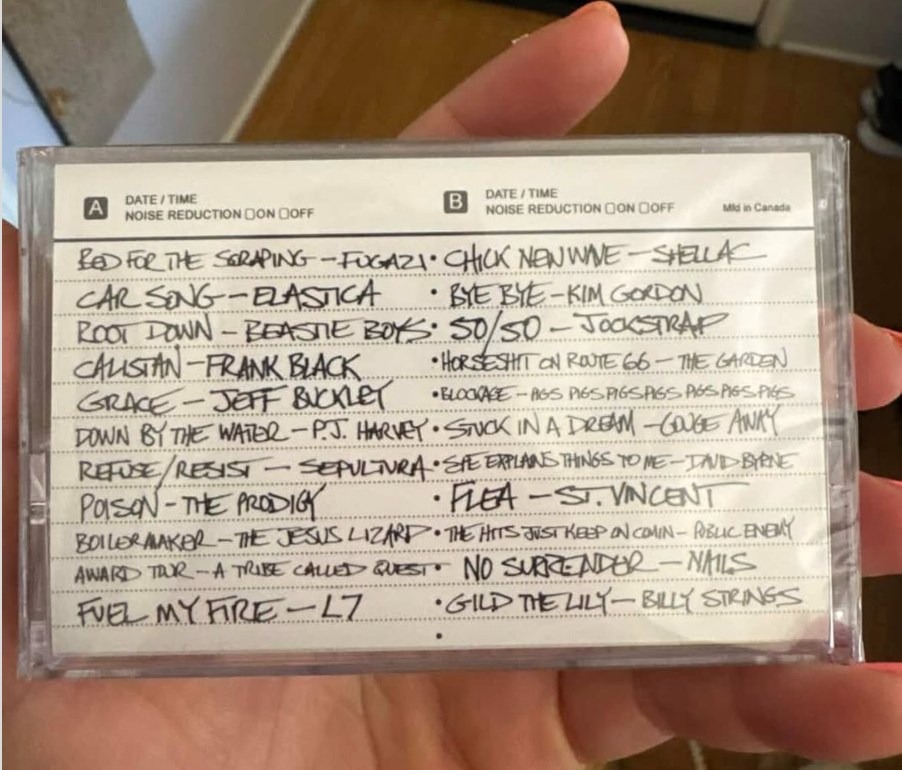 A DATE / TIME
NOISE REDUCTION ON OFF
B DATE / TIME
NOISE REDUCTION ON OFF
Mld in Canada
BED FOR THE SCRAPING - FUGAZI
CAR SONG - ELASTICA
ROOT DOWN - BEASTIE BOYS
CALISTAN - FRANK BLACK
GRACE - JEFF BUCKLEY
DOWN BY THE WATER - P.J. HARVEY
REFUSE/RESIST - SEPULTURA
POISON - THE PRODIGY
BOILERMAKER - THE JESUS LIZARD
AWARD TOUR - A TRIBE CALLED QUEST
FUEL MY FIRE - L7
• CHICK NEW WAVE - SHELLAC
• BYE BYE - KIM GORDON
• 50/50 - JOCKSTRAP
• HORSESHIT ON ROUTE 66 - THE GARDEN
• BLOCKAGE - PIGS PIGS PIGS PIGS PIGS PIGS PIGS
• STUCK IN A DREAM - GOUGE AWAY
• SHE EXPLAINS THINGS TO ME - DAVID BYRNE
• FLEA - ST. VINCENT
• THE HITS JUST KEEP ON COMIN - PUBLIC ENEMY
• NO SURRENDER - NAILS
• GILD THE LILY - BILLY STRINGS
•